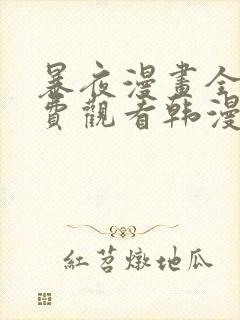 暴夜漫畫全
費觀看韩漫
紅苕燉地瓜